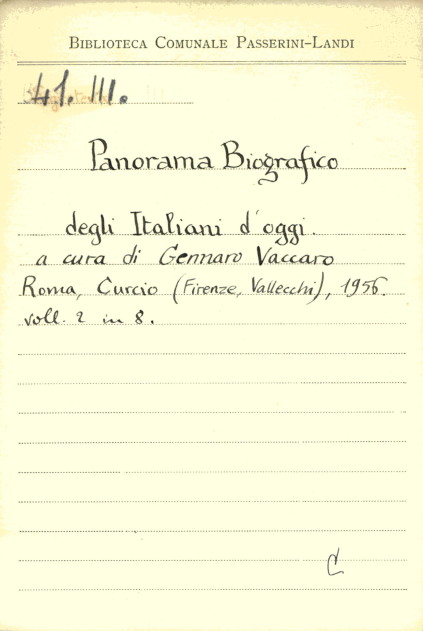 Biblioteca Comunale Passerini-Landi
41. III.
Panorama Biografico
degli Italiani d'oggi.
a cura di Gennaro Vaccaro
Roma, Curcio (Firenze, Vallecchi), 1956.
voll. 2 in 8.